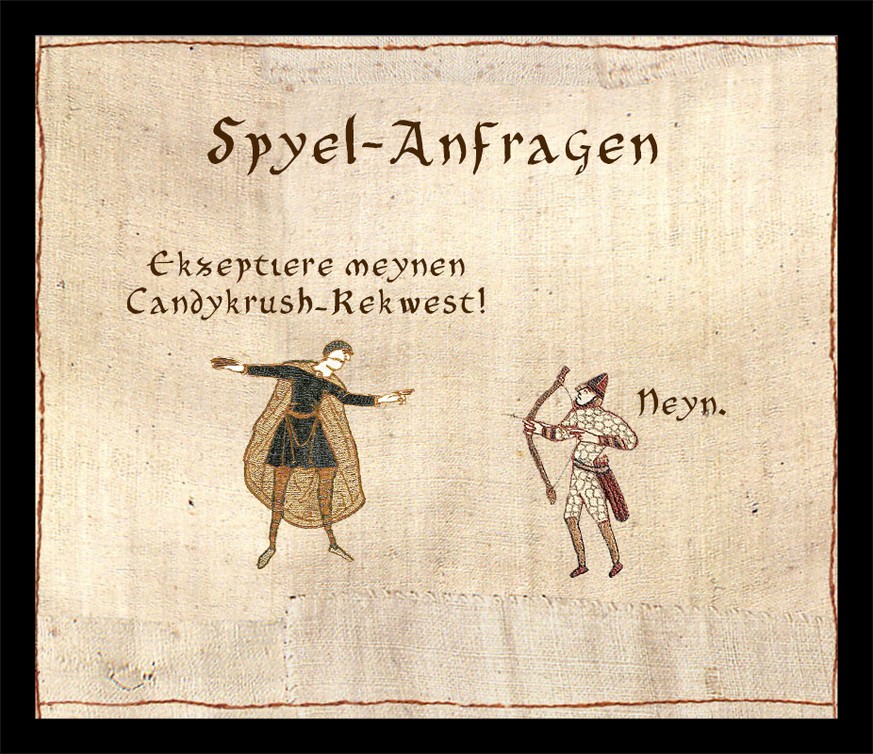 Spyel-Anfragen
Ekzeptiere meynen
Candykrush-Rekwest!
Neyn.